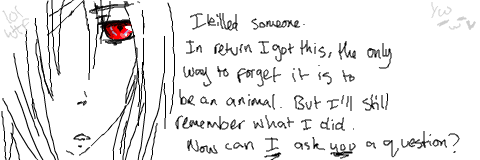 lol
wtf
I killed someone.
In return I got this, the only
way to forget it is to
be an animal. But I'll still
remember what I did.
Now can I ask you a question?